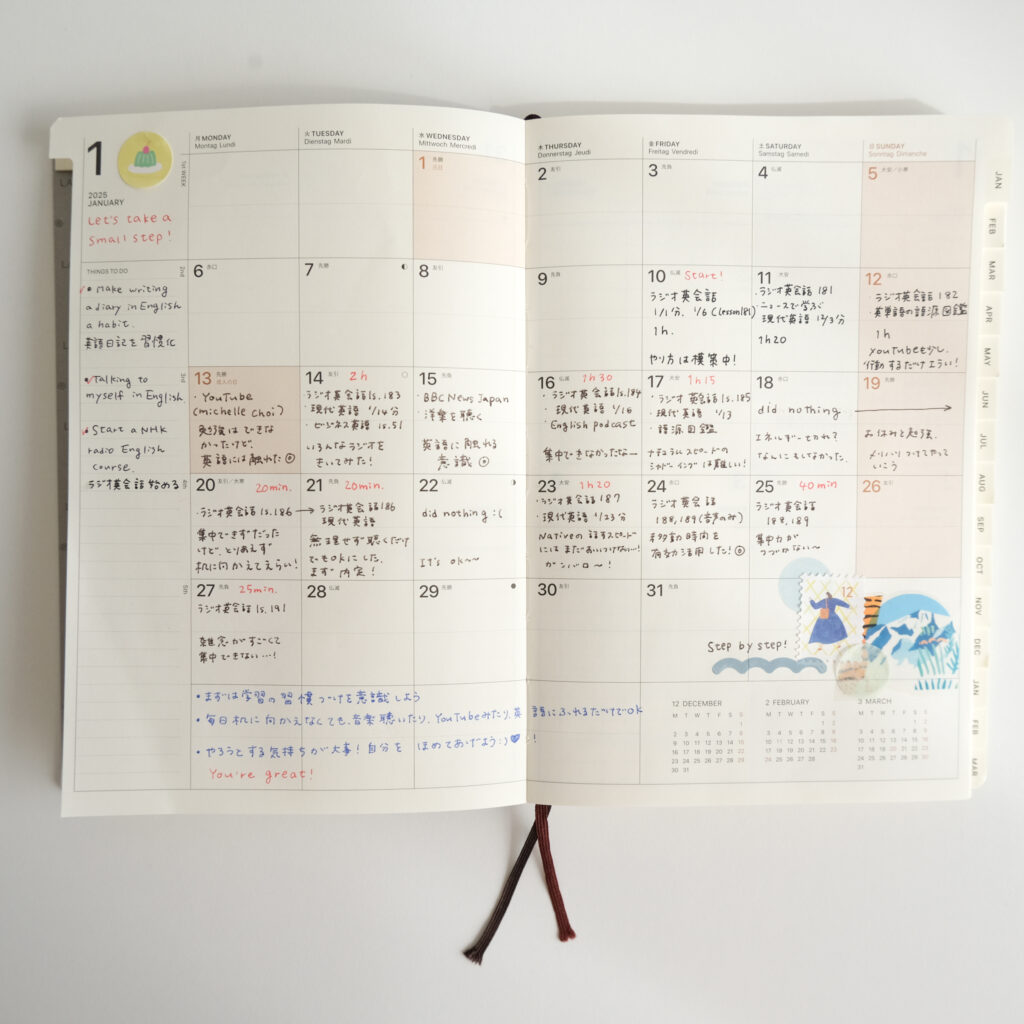 1
2025
JANUARY
Let's take a
small step!
月 MONDAY
Montag Lundi
火 TUESDAY
Dienstag Mardi
水 WEDNESDAY
Mittwoch Mercredi
木 THURSDAY
Donnerstag Jeudi
金 FRIDAY
Freitag Vendredi
土 SATURDAY
Samstag Samedi
日 SUNDAY
Sonntag Dimanche
1st WEEK
1 先勝
元日
2 友引
3 先負
4 仏滅
5 大安/小寒
THINGS TO DO
2nd
• Make writing
a diary in English
a habit.
英語日記を習慣化
6 赤口
7 先勝
8 友引
9 先負
10 仏滅 Start!
ラジオ英会話
1/1分、1/6 (lesson181)
1h.
やり方は模索中!
11 大安
・ラジオ英会話 181
・ニュースで学ぶ
現代英語 12/3分
1h20
12 赤口
・ラジオ英会話 182
・英単語の語源図鑑
1h
YouTubeも少し。
行動するだけエライ!
3rd
• Talking to
myself in English
• Start a NHK
radio English
course.
ラジオ英会話始める
13 先勝
成人の日
・YouTube
(michelle choi)
勉強はできな
かったけど、
英語には触れた◎
14 友引 2h
・ラジオ英会話 ls.183
・現代英語 1/14分
・ビジネス英語 ls.51
いろんなラジオを
きいてみた!
15 先負
・BBC News Japan
・洋楽を聴く
英語に触れる
意識◎
16 仏滅 1h30
・ラジオ英会話 ls.184
・現代英語 1/16
・English podcast
集中できなかったなー
17 大安 1h15
・ラジオ英会話 ls.185
・現代英語 1/13
・語源図鑑
ナチュラルスピードの
シャドーイングは難しい!
18 赤口
did nothing
エネルギー切れ?
なんにもしなかった。
19 先勝
お休みと勉強、
メリハリつけてやって
いこう
4th
20 友引/大寒 20min.
・ラジオ英会話 ls.186
集中できずだった
けど、とりあえず
机に向かえてえらい!
21 先負 20min.
→ ラジオ英会話186
現代英語
無理せず聴くだけ
でもOKにした。
まず内実!
22 仏滅
did nothing :(
It's ok~~
23 大安 1h20
・ラジオ英会話 187
・現代英語 1/23分
Nativeの話すスピード
にはまだおいつけない…!
ガンバロ〜!
24 赤口
・ラジオ英会話
188,189(音声のみ)
移動時間を
有効活用した!◎
25 先勝 40min
ラジオ英会話
188,189
集中力が
つづかない〜
26 友引
5th
27 先負 25min.
ラジオ英会話 ls.191
雑念がすごくて
集中できない…!
28 仏滅
29 先勝
30 友引
31 先負
Step by step!
12
• まずは学習の習慣づけを意識しよう
• 毎日机に向かえなくても、音楽聴いたり、YouTubeみたり、英語にふれるだけでOK
• やろうとする気持ちが大事!自分をほめてあげよう:)!
You're great!
12 DECEMBER
M T W T F S S
1
2 3 4 5 6 7 8
9 10 11 12 13 14 15
16 17 18 19 20 21 22
23 24 25 26 27 28 29
30 31
2 FEBRUARY
M T W T F S S
1 2
3 4 5 6 7 8 9
10 11 12 13 14 15 16
17 18 19 20 21 22 23
24 25 26 27 28
3 MARCH
M T W T F S S
1 2
3 4 5 6 7 8 9
10 11 12 13 14 15 16
17 18 19 20 21 22 23
24 25 26 27 28 29 30
31
JAN
FEB
MAR
APR
MAY
JUN
JUL
AUG
SEP
OCT
NOV
DEC
JAN
FEB
MAR